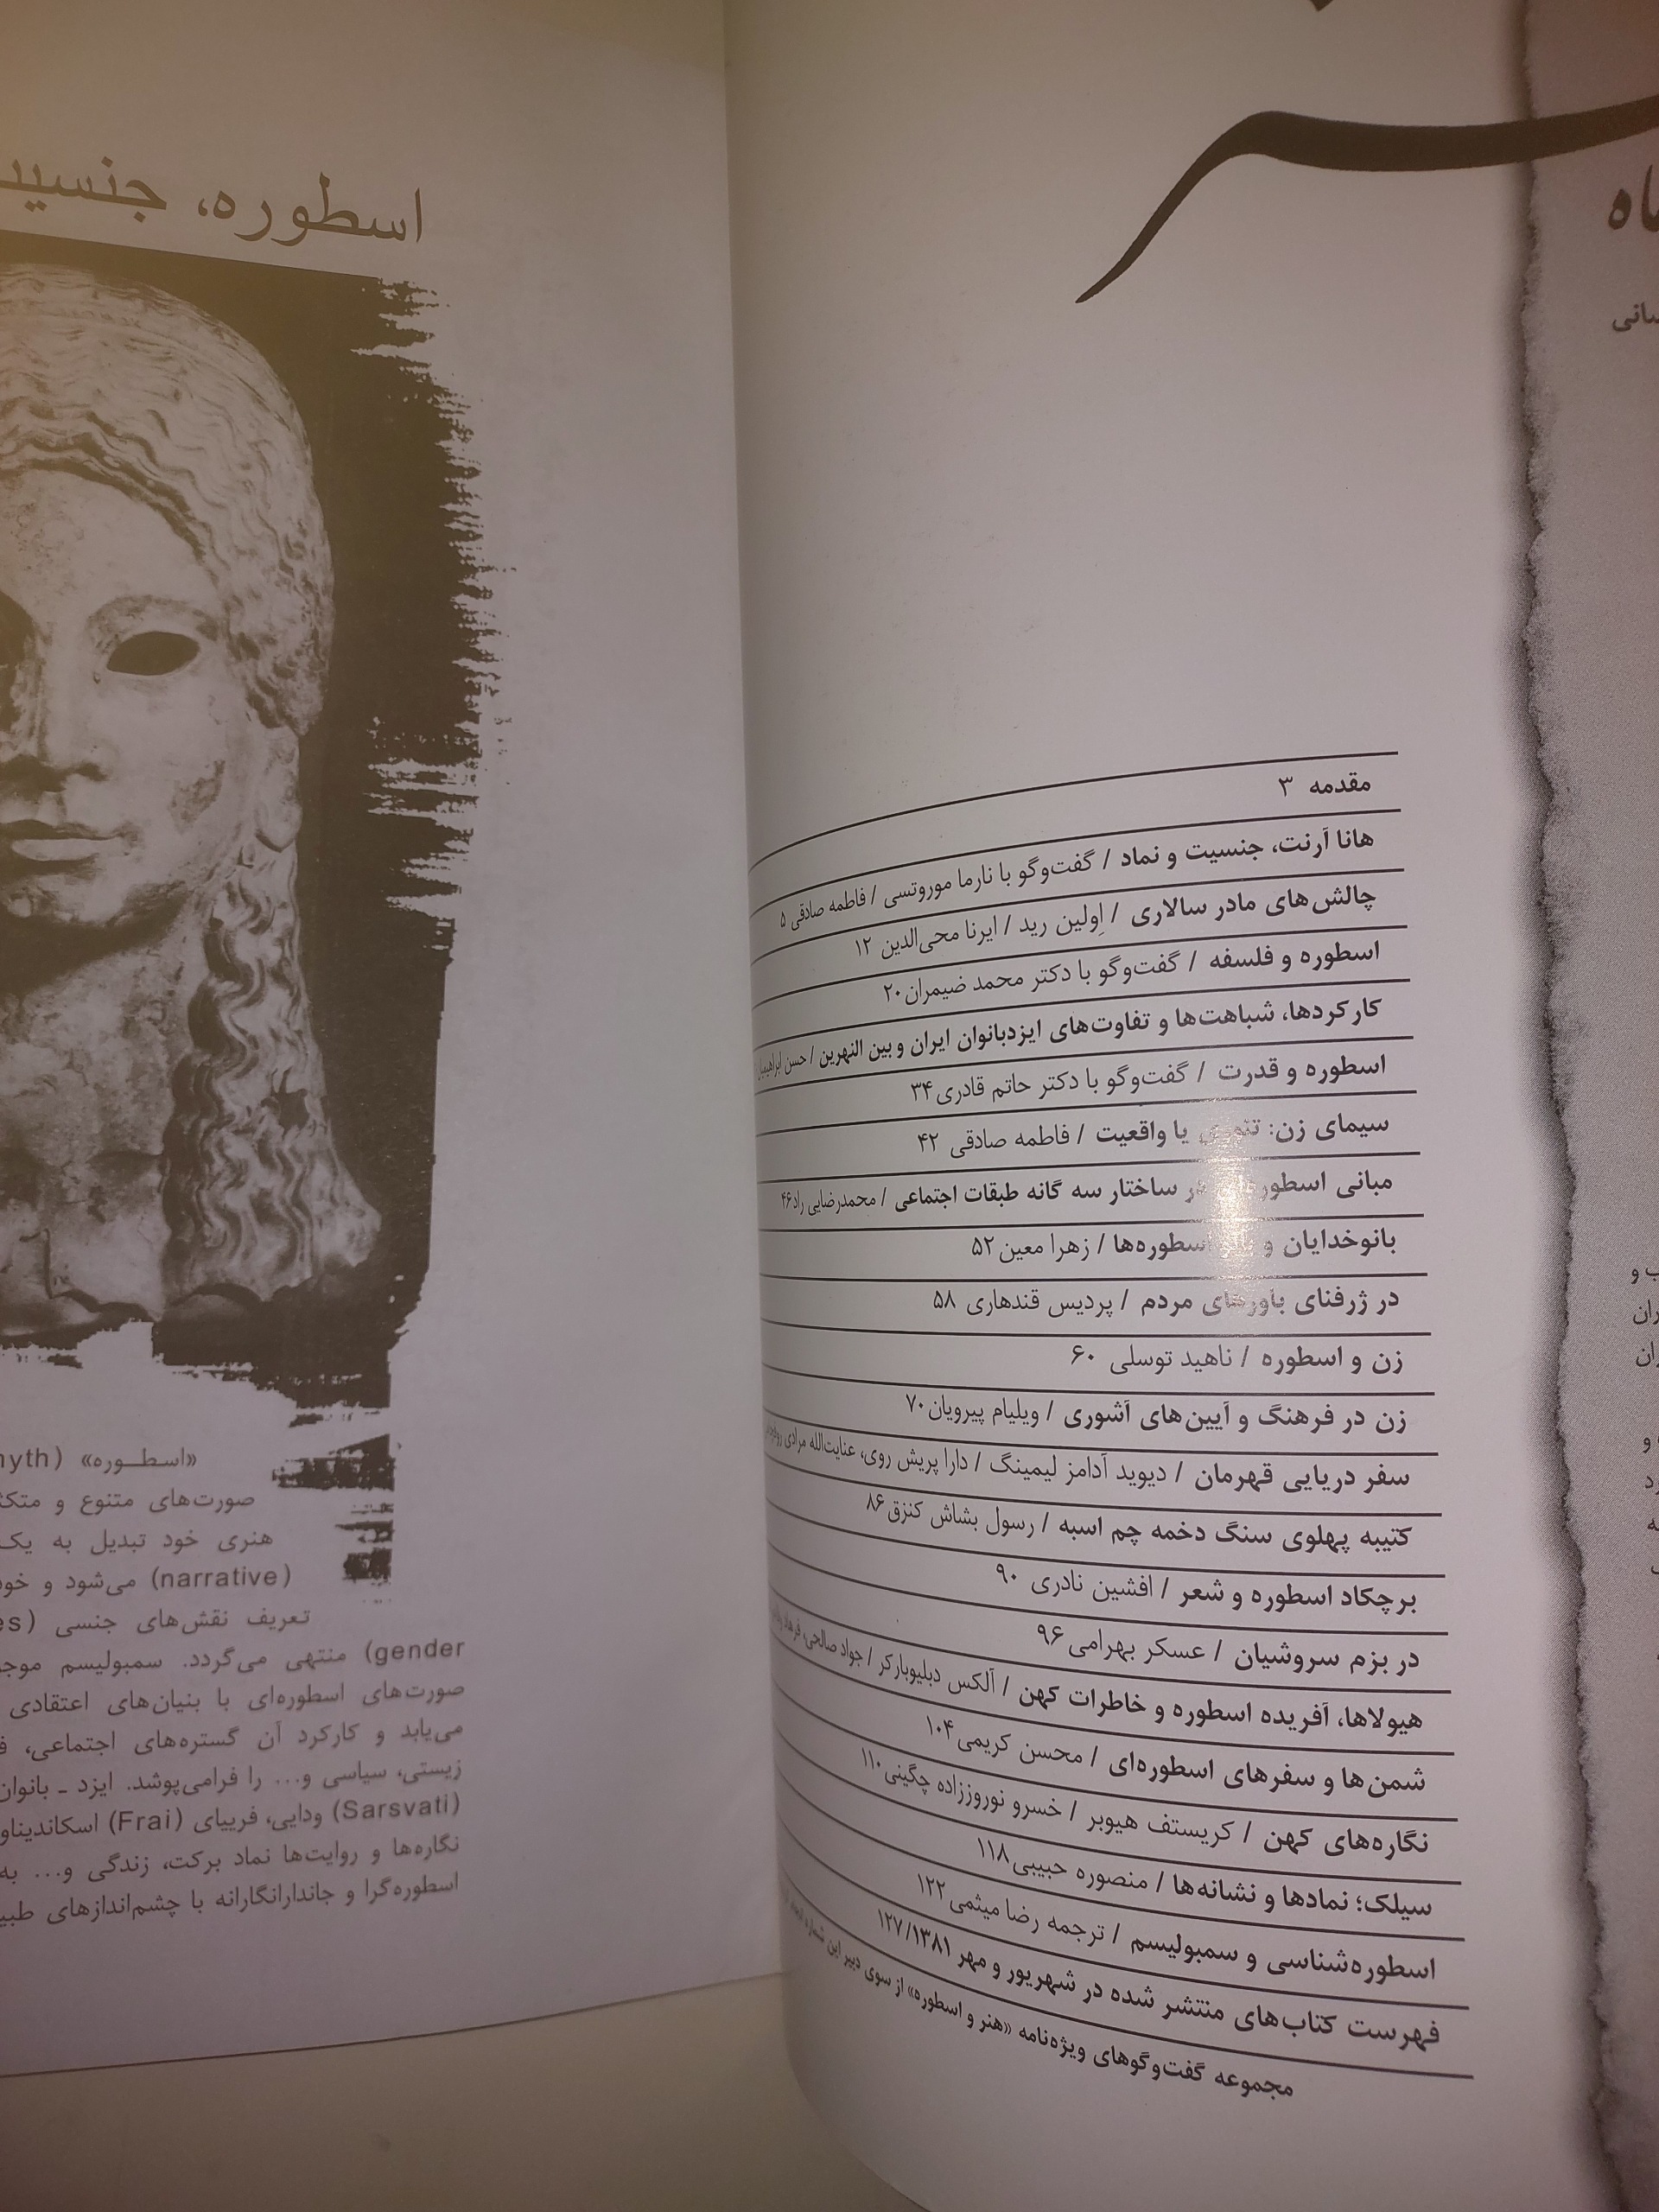 مقدمه ۳
هانا آرنت، جنسیت و نماد / گفت‌وگو با نارما موروتسی / فاطمه صادقی ۵
چالش‌های مادر سالاری / اِولین رید / ایرنا محی‌الدین ۱۲
اسطوره و فلسفه / گفت‌وگو با دکتر محمد ضیمران ۲۰
کارکردها، شباهت‌ها و تفاوت‌های ایزدبانوان ایران و بین النهرین / حسن
اسطوره و قدرت / گفت‌وگو با دکتر حاتم قادری ۳۴
سیمای زن: یا واقعیت / فاطمه صادقی ۴۲
مبانی در ساختار سه گانه طبقات اجتماعی / محمدرضایی راد ۴۶
بانوخدایان و اسطوره‌ها / زهرا معین ۵۲
در ژرفنای باورهای مردم / پردیس قندهاری ۵۸
زن و اسطوره / ناهید توسلی ۶۰
زن در فرهنگ و آیین‌های آشوری / ویلیام پیرویان ۷۰
سفر دریایی قهرمان / دیوید آدامز لیمینگ / دارا پریش روی، عنایت‌الله مرادی
کتیبه پهلوی سنگ دخمه چم اسبه / رسول بشاش کنزق ۸۶
برچکاد اسطوره و شعر / افشین نادری ۹۰
در بزم سروشیان / عسکر بهرامی ۹۶
هیولاها، آفریده اسطوره و خاطرات کهن / آلکس دبلیوبارکر / جواد صالحی، فرهاد
شمن‌ها و سفرهای اسطوره‌ای / محسن کریمی ۱۰۴
نگاره‌های کهن / کریستف هیوبر / خسرو نوروززاده چگینی ۱۱۰
سیلک؛ نمادها و نشانه‌ها / منصوره حبیبی ۱۱۸
اسطوره‌شناسی و سمبولیسم / ترجمه رضا میثمی ۱۲۲
فهرست کتاب‌های منتشر شده در شهریور و مهر ۱۳۸۱/ ۱۲۷
مجموعه گفت‌وگوهای ویژه‌نامه «هنر و اسطوره» از سوی دبیر این شماره
اسطوره،
«اسطوره»
صورت‌های متنوع و
هنری خود تبدیل به یک
(narrative) می‌شود و
تعریف نقش‌های جنسی
gender) منتهی می‌گردد. سمبولیسم
صورت‌های اسطوره‌ای با بنیان‌های اعتقادی
می‌یابد و کارکرد آن گستره‌های اجتماعی،
زیستی، سیاسی و... را فرامی‌پوشد. ایزد ـ بانوان
(Sarsvati) ودایی، فرییای (Frai)
نگاره‌ها و روایت‌ها نماد برکت، زندگی و...
اسطوره‌گرا و جاندارانگارانه با چشم‌اندازهای